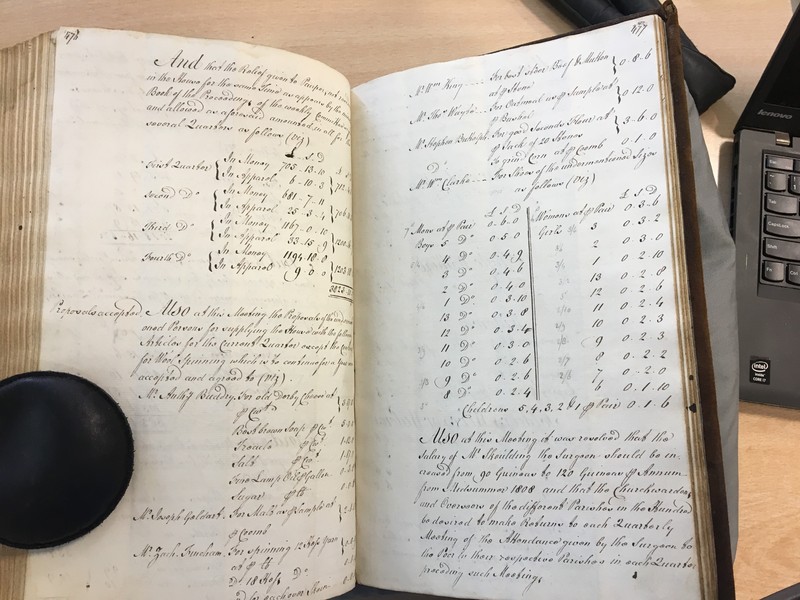 474
And that the Relief given to Paupers not
in the House for the same Time as appears by the
Book of the Proceedings of the weekly Committee
and allowed as aforesaid amounted in all for the
several Quarters as follows (Viz)
£ s D
First Quarter { In Money 705 - 13 - 10
In Apparel 6 - 10 - 3
Second Do { In Money 681 - 7 - 11
In Apparel 25 - 3 - 4
Third Do { In Money 1167 - 0 - 10
In Apparel 33 - 15 - 9
Fourth Do { In Money 1194 - 18 - 0
In Apparel 9 - 0 - 0
Proposals accepted. Also at this Meeting the Proposals of the
Persons for supplying the House with the
Articles for the Current Quarter except the
for Wool Spinning which is to continue for a
accepted and agreed to (Viz)
For old Dorby Cheese at
Best brown Soap
Treacle
Salt
Fine Lamp Oil Gallon
Sugar
Mr. Joseph Goldart. For Malt as Sample at
Coomb
Mr. Zach. Fincham. For spinning 12 Skey Yarn
at
Do 18 Do
477
Mr. Wm. King - - - For best Steer Beef & Mutton } 0 - 8 - 6
at Stone
For Oatmeal as Sample at } 0 12 0
Bushel
Mr. Stephen For good Seconds Flour at } 3 - 6 - 0
Sack of 20 Stones
Do To grind Corn at Coomb 0 - 1 - 0
Mr. Wm. Clarke - - - For Shoes of the undermentioned Sizes
as follows (Viz)
£ s D
7 Mens at Pair 0 - 6 - 0
Boys 5 Do 0 5 - 0
4 Do 0 - 4 - 9
3 Do 0 - 4 - 6
2 Do 0 - 4 0
1 Do 0 - 3 - 10
13 Do 0 - 3 - 8
12 Do 0 - 3 - 4
11 Do 0 - 3 0
10 Do 0 - 2 - 6
9 Do 0 - 2 - 6
8 Do 0 - 2 - 4
£ s D
Womans at Pair 0 - 3 - 6
Girls 3 0 - 3 - 2
2 0 - 3 - 0
1 0 - 2 - 10
13 0 - 2 - 8
12 0 - 2 - 6
11 0 - 2 - 4
10 0 - 2 - 3
9 0 - 2 - 3
8 0 - 2 - 2
7 0 - 2 - 0
6 0 - 1 - 10
Childrens 5, 4, 3, 2 & 1 Pair 0 - 1 - 6
Also at this Meeting it was resolved that the
Salary of Mr. Skoulding the Surgeon should be in-
creased from 90 Guineas to 120 Guineas Annum
from Midsummer 1808 and that the Churchwardens
and Overseers of the different Parishes in the Hundred
be desired to make Returns to each Quarterly
Meeting of the Attendance given by the Surgeon to
the Poor in their respective Parishes in each Quarter
preceding such Meeting.
lenovo
Esc
Tab
Caps Lock
Shift
Fn
Ctrl
intel
inside
CORE i7